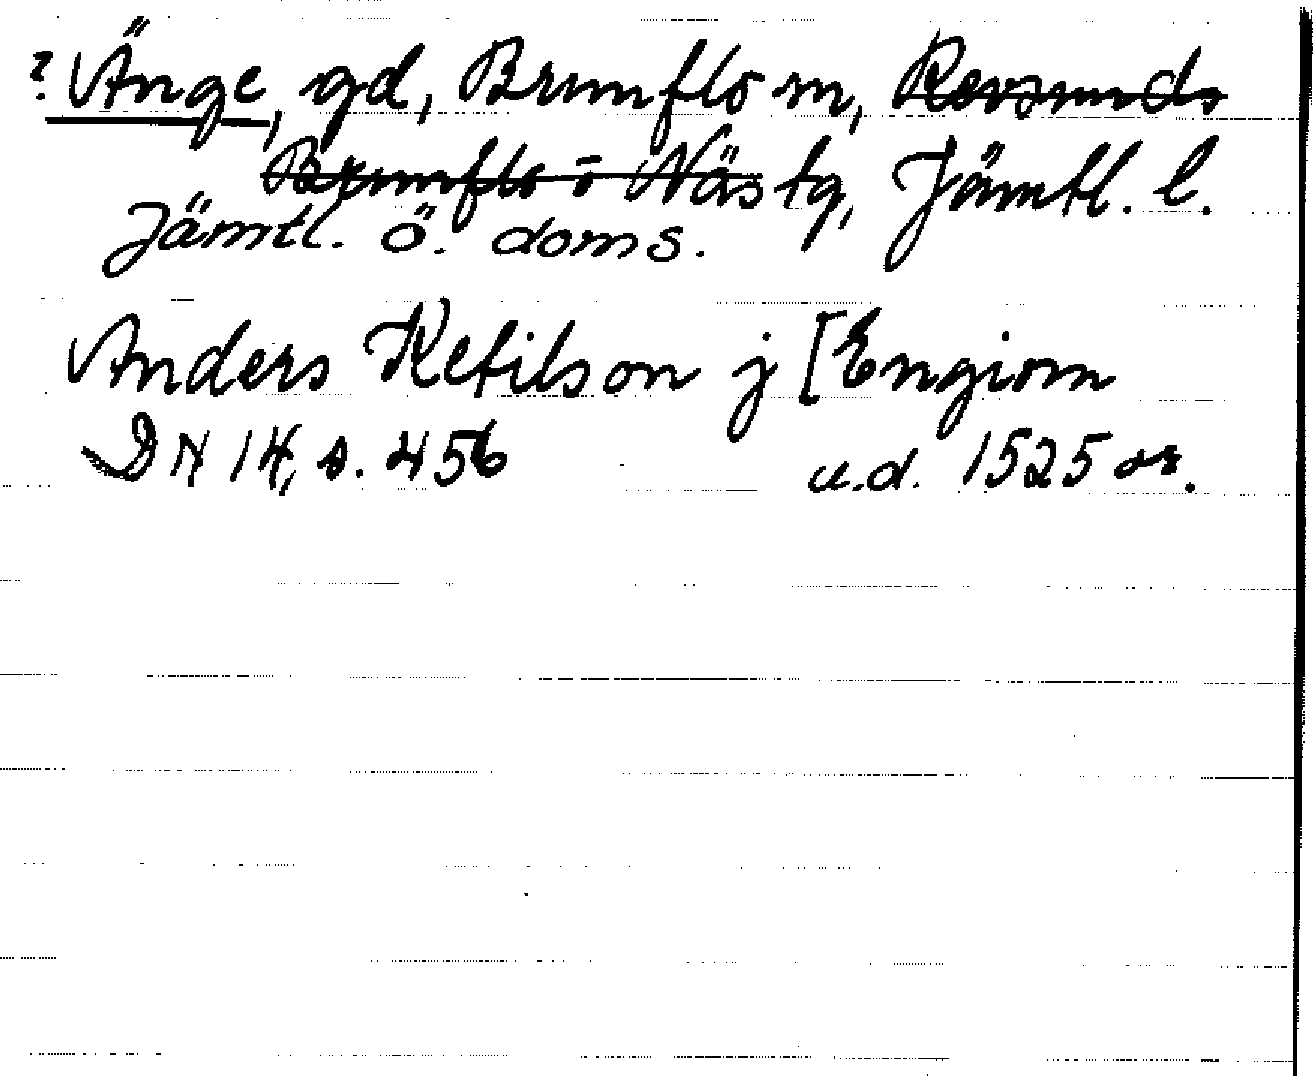 ? Änge, gd, Brunflo sn, Revsunds
Brunflo o Näs tg, Jämtl. l.
Jämtl. ö. doms.
Anders Ketilson j [Engiom
DN 14, s. 456 u.d. 1525 or.